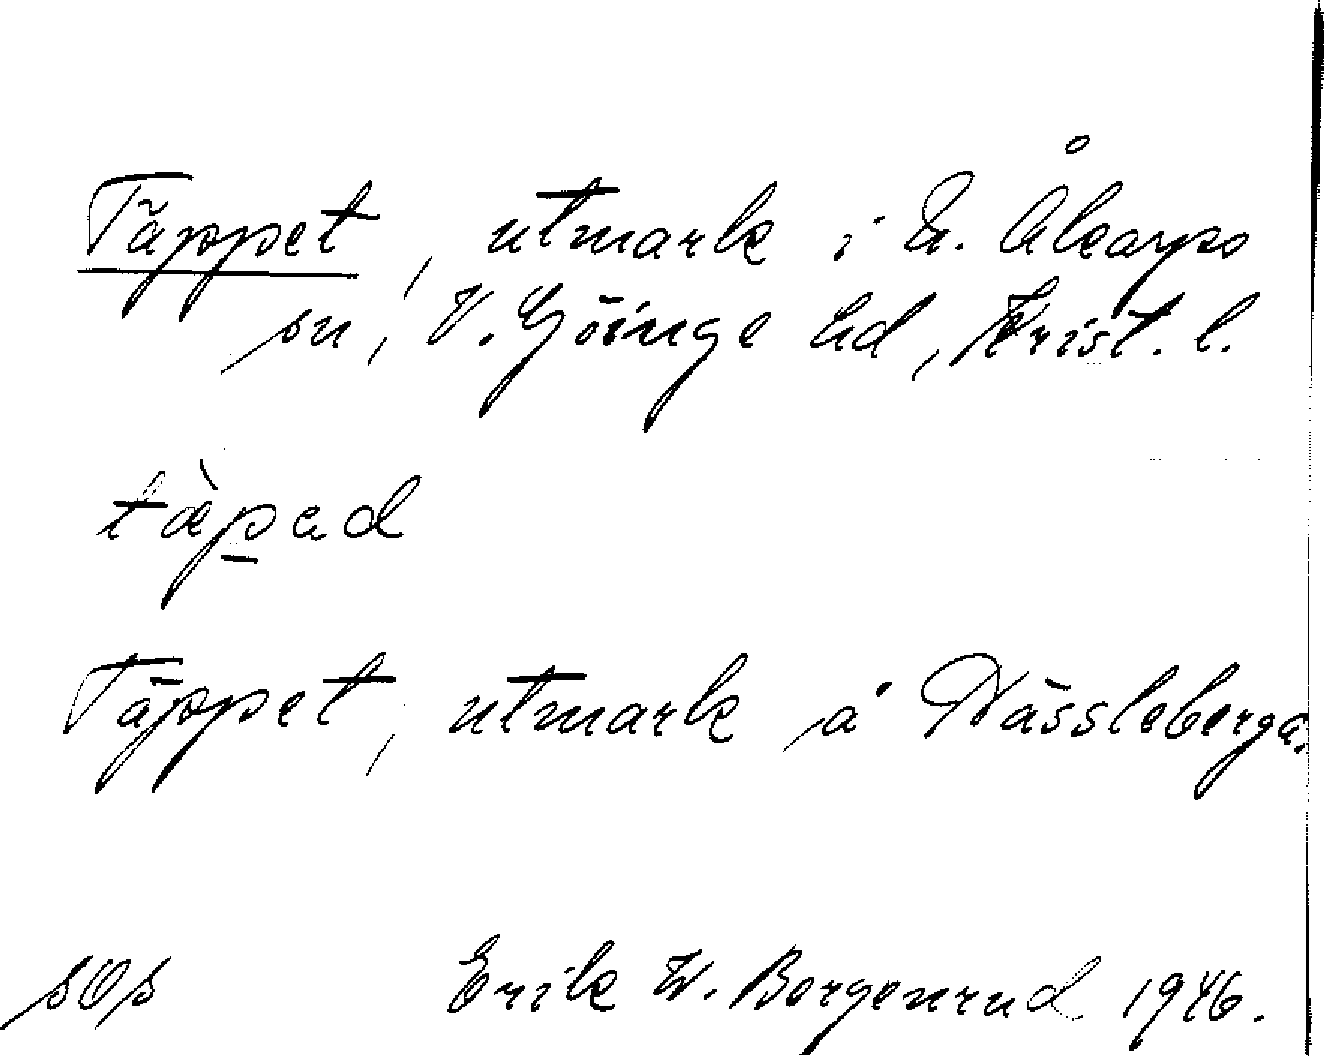 Täppet, utmark i N. Åkarps
sn, V. Göinge hd, Krist. l.
tæ̀pad
Täppet, utmark å Nässleberga.
Erik W. Borgenrud 1946.